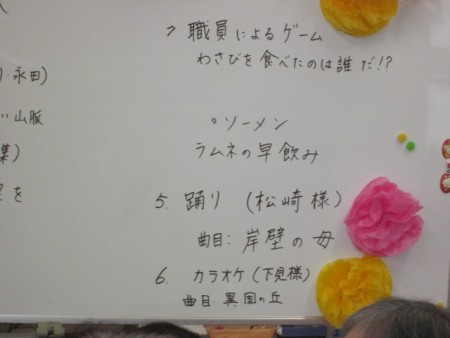 ・永田)
山脈
を
職員によるゲーム
わさびを食べたのは誰だ!?
○ソーメン
ラムネの早飲み
5. 踊り (松崎様)
曲目: 岸壁の母
6. カラオケ(下見様)
曲目・異国の丘